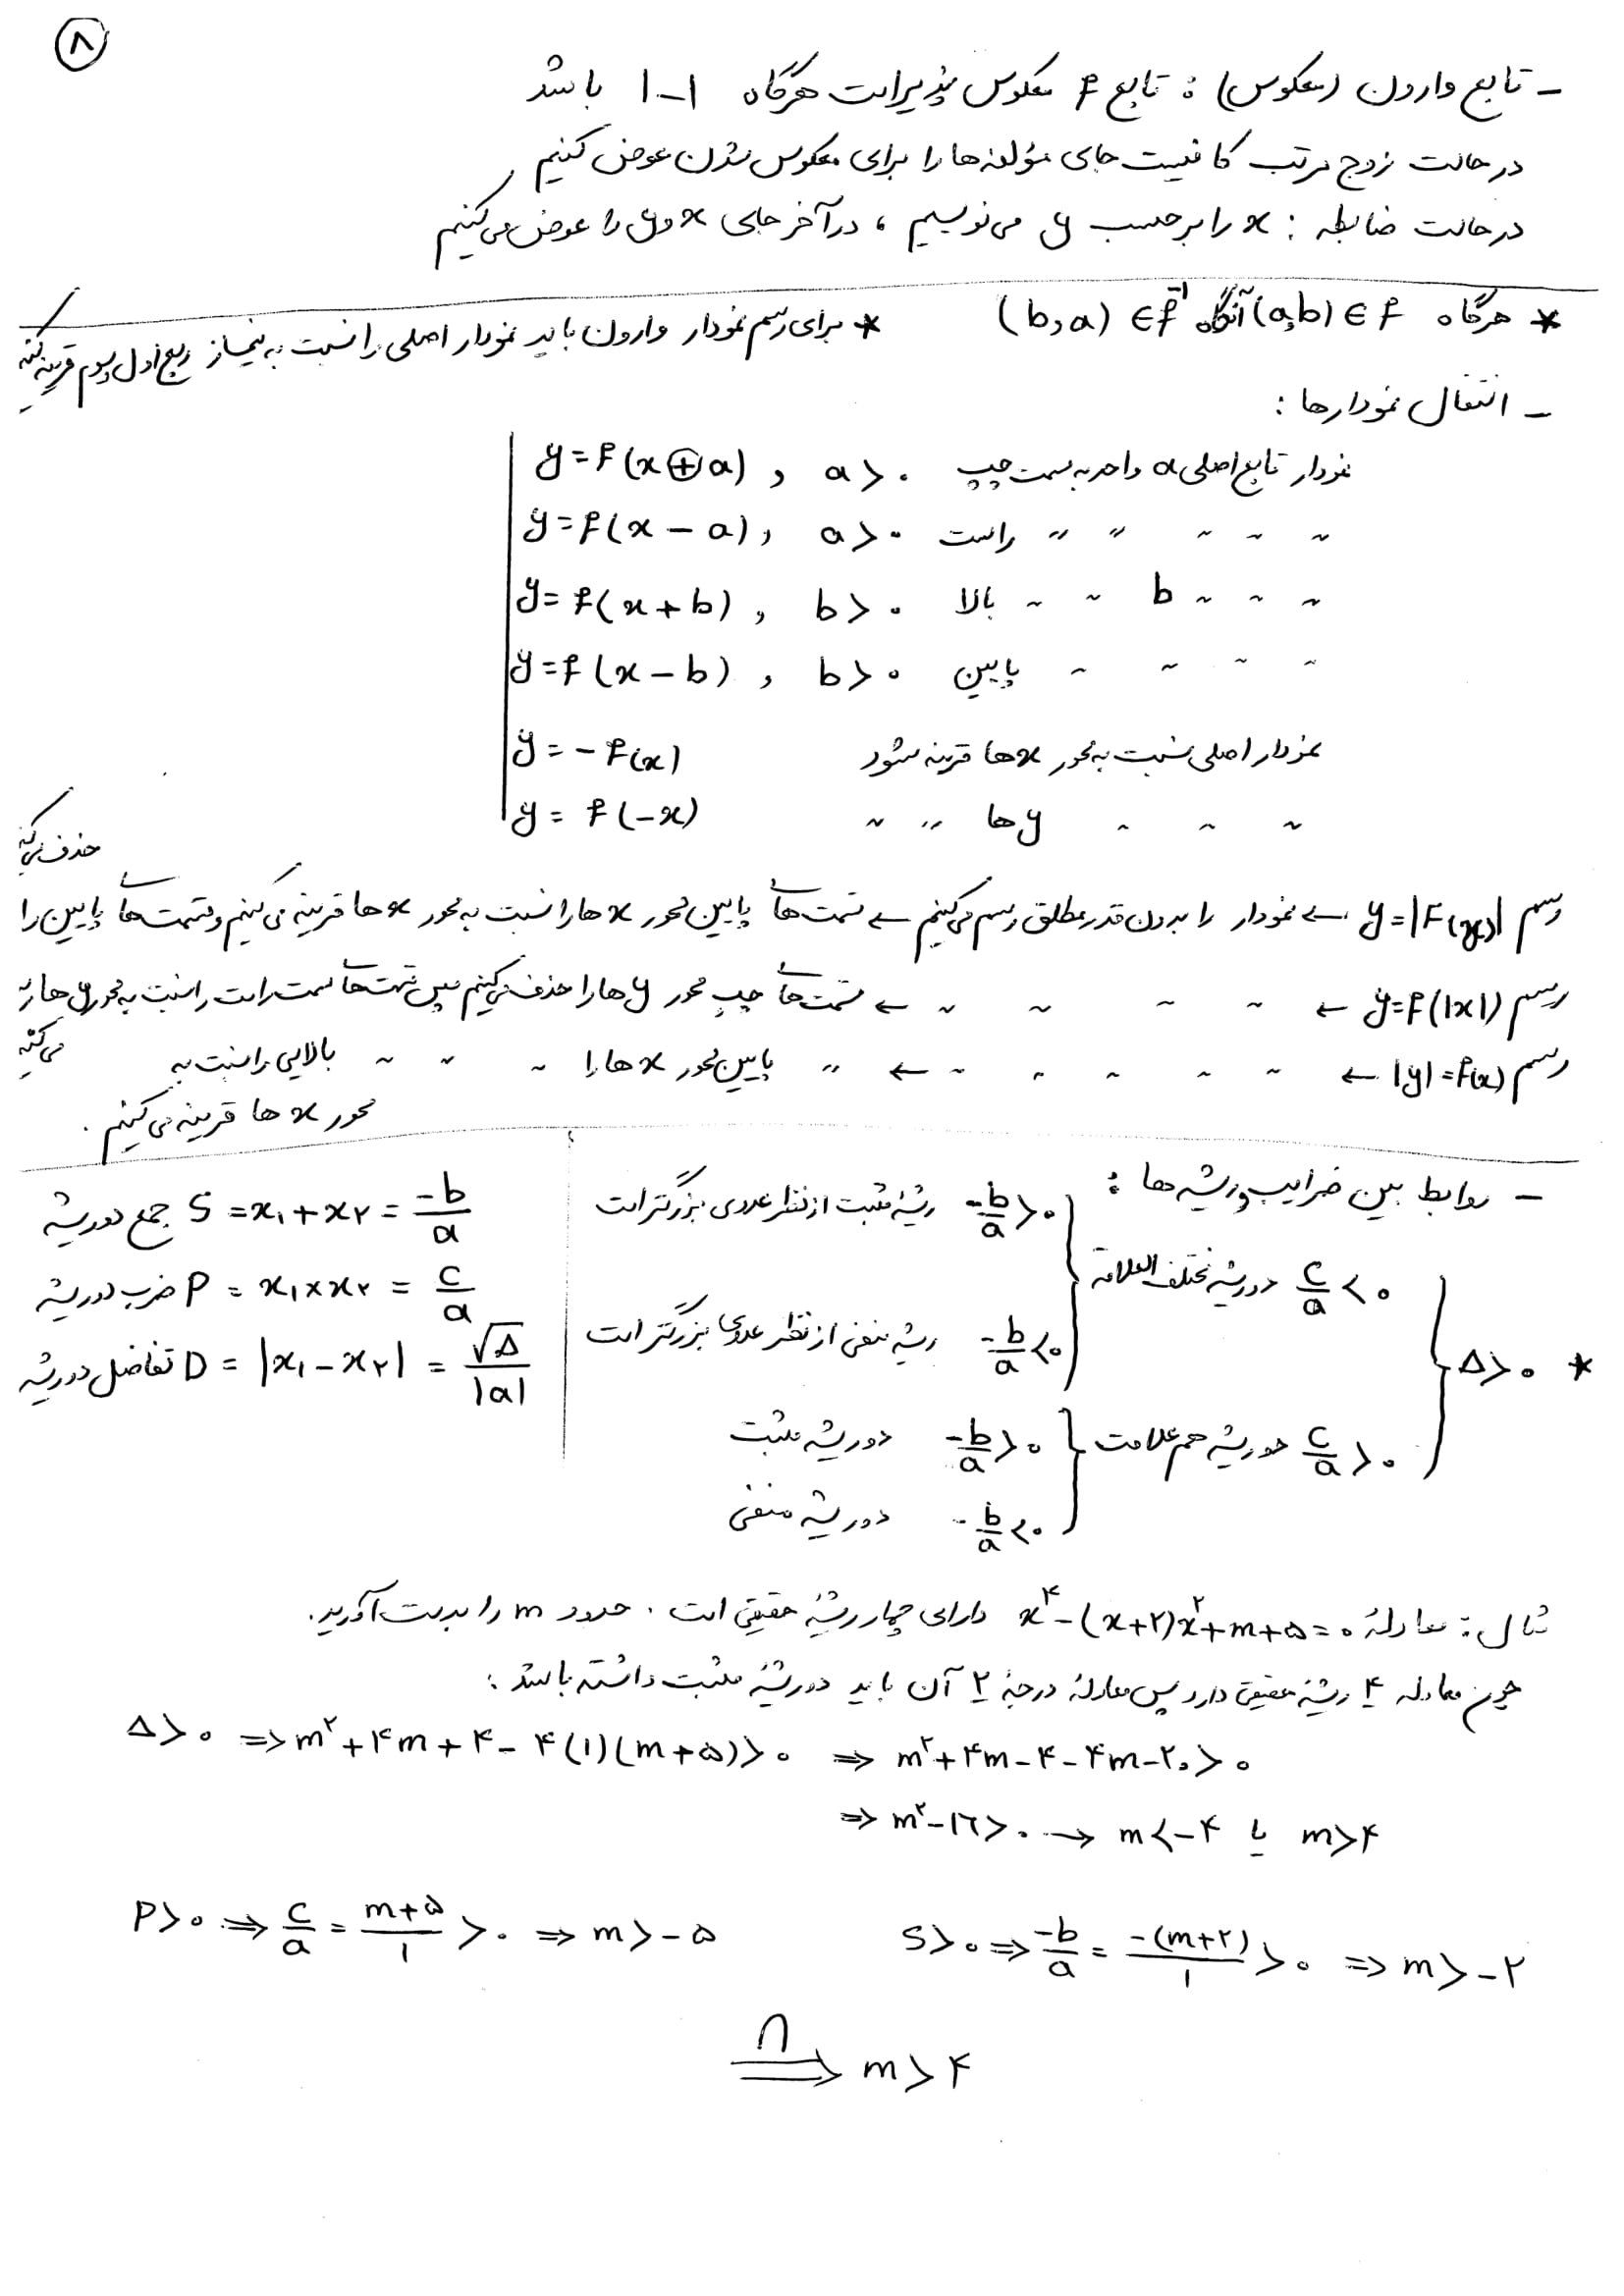 ۸
- تابع وارون (معکوس) : تابع f معکوس پذیر است هرگاه ۱-۱ باشد
در حالت زوج مرتب کافیست جای مؤلفه ها را برای معکوس شدن عوض کنیم
در حالت ضابطه : x را بر حسب y می نویسیم ، در آخر جای x و y را عوض می کنیم
* هرگاه (a,b) ∈ f آنگاه (b,a) ∈ f⁻¹
* برای رسم نمودار وارون باید نمودار اصلی را نسبت به نیمساز ربع اول و سوم قرینه کنیم
- انتقال نمودارها :
y = f(x ⊕ a) , a > ۰ نمودار تابع اصلی a واحد به سمت چپ
y = f(x - a) , a > ۰ راست " " " " "
y = f(x + b) , b > ۰ بالا " " b " " "
y = f(x - b) , b > ۰ پایین " " " "
y = -f(x) نمودار اصلی نسبت به محور x ها قرینه شود
y = f(-x) " " " y ها " "
رسم y = |f(x)| ← نمودار را بدون قدر مطلق رسم می کنیم ← قسمت های پایین محور x ها را نسبت به محور x ها قرینه می کنیم و قسمت های پایین را حذف می کنیم
رسم y = f(|x|) ← " " " " " ← قسمت های چپ محور y ها را حذف می کنیم سپس قسمت های سمت راست را نسبت به محور y ها قرینه می کنیم
رسم |y| = f(x) ← " " " " " ← " پایین محور x ها را " " " بالایی را نسبت به
محور x ها قرینه می کنیم .
- روابط بین ضرایب و ریشه ها :
* Δ > ۰
c/a < ۰ دو ریشه مختلف العلامة
-b/a > ۰ ریشهٔ مثبت از نظر عددی بزرگتر است
-b/a < ۰ ریشه منفی از نظر عددی بزرگتر است
c/a > ۰ دو ریشه هم علامت
-b/a > ۰ دو ریشه مثبت
-b/a < ۰ دو ریشه منفی
جمع دو ریشه S = x₁ + x₂ = -b/a
ضرب دو ریشه P = x₁ × x₂ = c/a
تفاضل دو ریشه D = |x₁ - x₂| = √Δ/|a|
مثال : معادلهٔ x⁴ - (x+۲)x² + m + ۵ = ۰ دارای چهار ریشهٔ حقیقی است . حدود m را بدست آورید.
چون معادله ۴ ریشهٔ حقیقی دارد پس معادلهٔ درجهٔ ۲ آن باید دو ریشهٔ مثبت داشته باشد :
Δ > ۰ ⇒ m² + ۴m + ۴ - ۴(۱)(m+۵) > ۰ ⇒ m² + ۴m - ۴ - ۴m - ۲۰ > ۰
⇒ m² - ۱۶ > ۰ → m < -۴ یا m > ۴
P > ۰ ⇒ c/a = (m+۵)/۱ > ۰ ⇒ m > -۵ S > ۰ ⇒ -b/a = -(m+۲)/۱ > ۰ ⇒ m > -۲
∩⇒ m > ۴